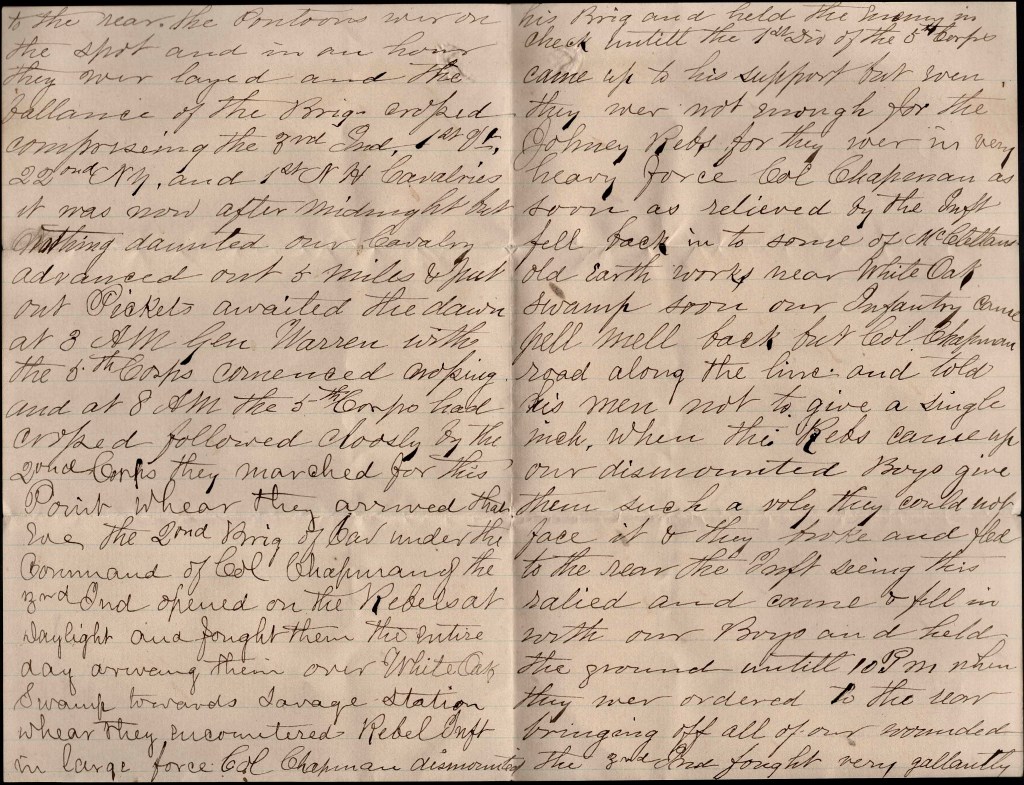 to the rear. the Pontoons wer on
the spot and in an hour
they wer layed and the
ballance of the Brig. croped
compriseing the 3rd Ind. 1st Vt,
22ond NY, and 1st N H Cavalries
it was now after midnight but
nothing daunted our Cavalry
advanced out 5 miles & put
out Pickets awaited the dawn
at 3 AM Gen Warren with
the 5th Corps comenced croping
and at 8 AM the 5th Corps had
croped followed closly by the
2ond Corps they marched for this
Point whear they arrived that
Eve, the 2ond Brig of Cav under the
Command of Col Chapman of the
3rd Ind opened on the Rebels at
daylight and fought them the entire
day driveing them over White Oak
Swamp towards Savage Station
whear they encountered Rebel Inft
in large force Col Chapman dismounted
his Brig and held the Enemy in
check untill the 1st Div of the 5th Corps
came up to his support but even
they wer not enough for the
Johney Rebs for they wer in very
heavy force Col Chapman as
soon as relieved by the Inft
fell back in to some of McClellans
old Earth works near White Oak
swamp soon our Infantry came
pell mell back but Col Chapman
road along the line and told
his men not to give a single
inch, when the Rebs came up
our dismounted Boys give
them such a voly they could not
face it & they broke and fled
to the rear the Inft seeing this
ralied and came & fell in
with our Boys and held
the ground untill 10 P m when
they wer ordered to the rear
bringing off all of our wounded
the 3rd Ind fought very gallantly